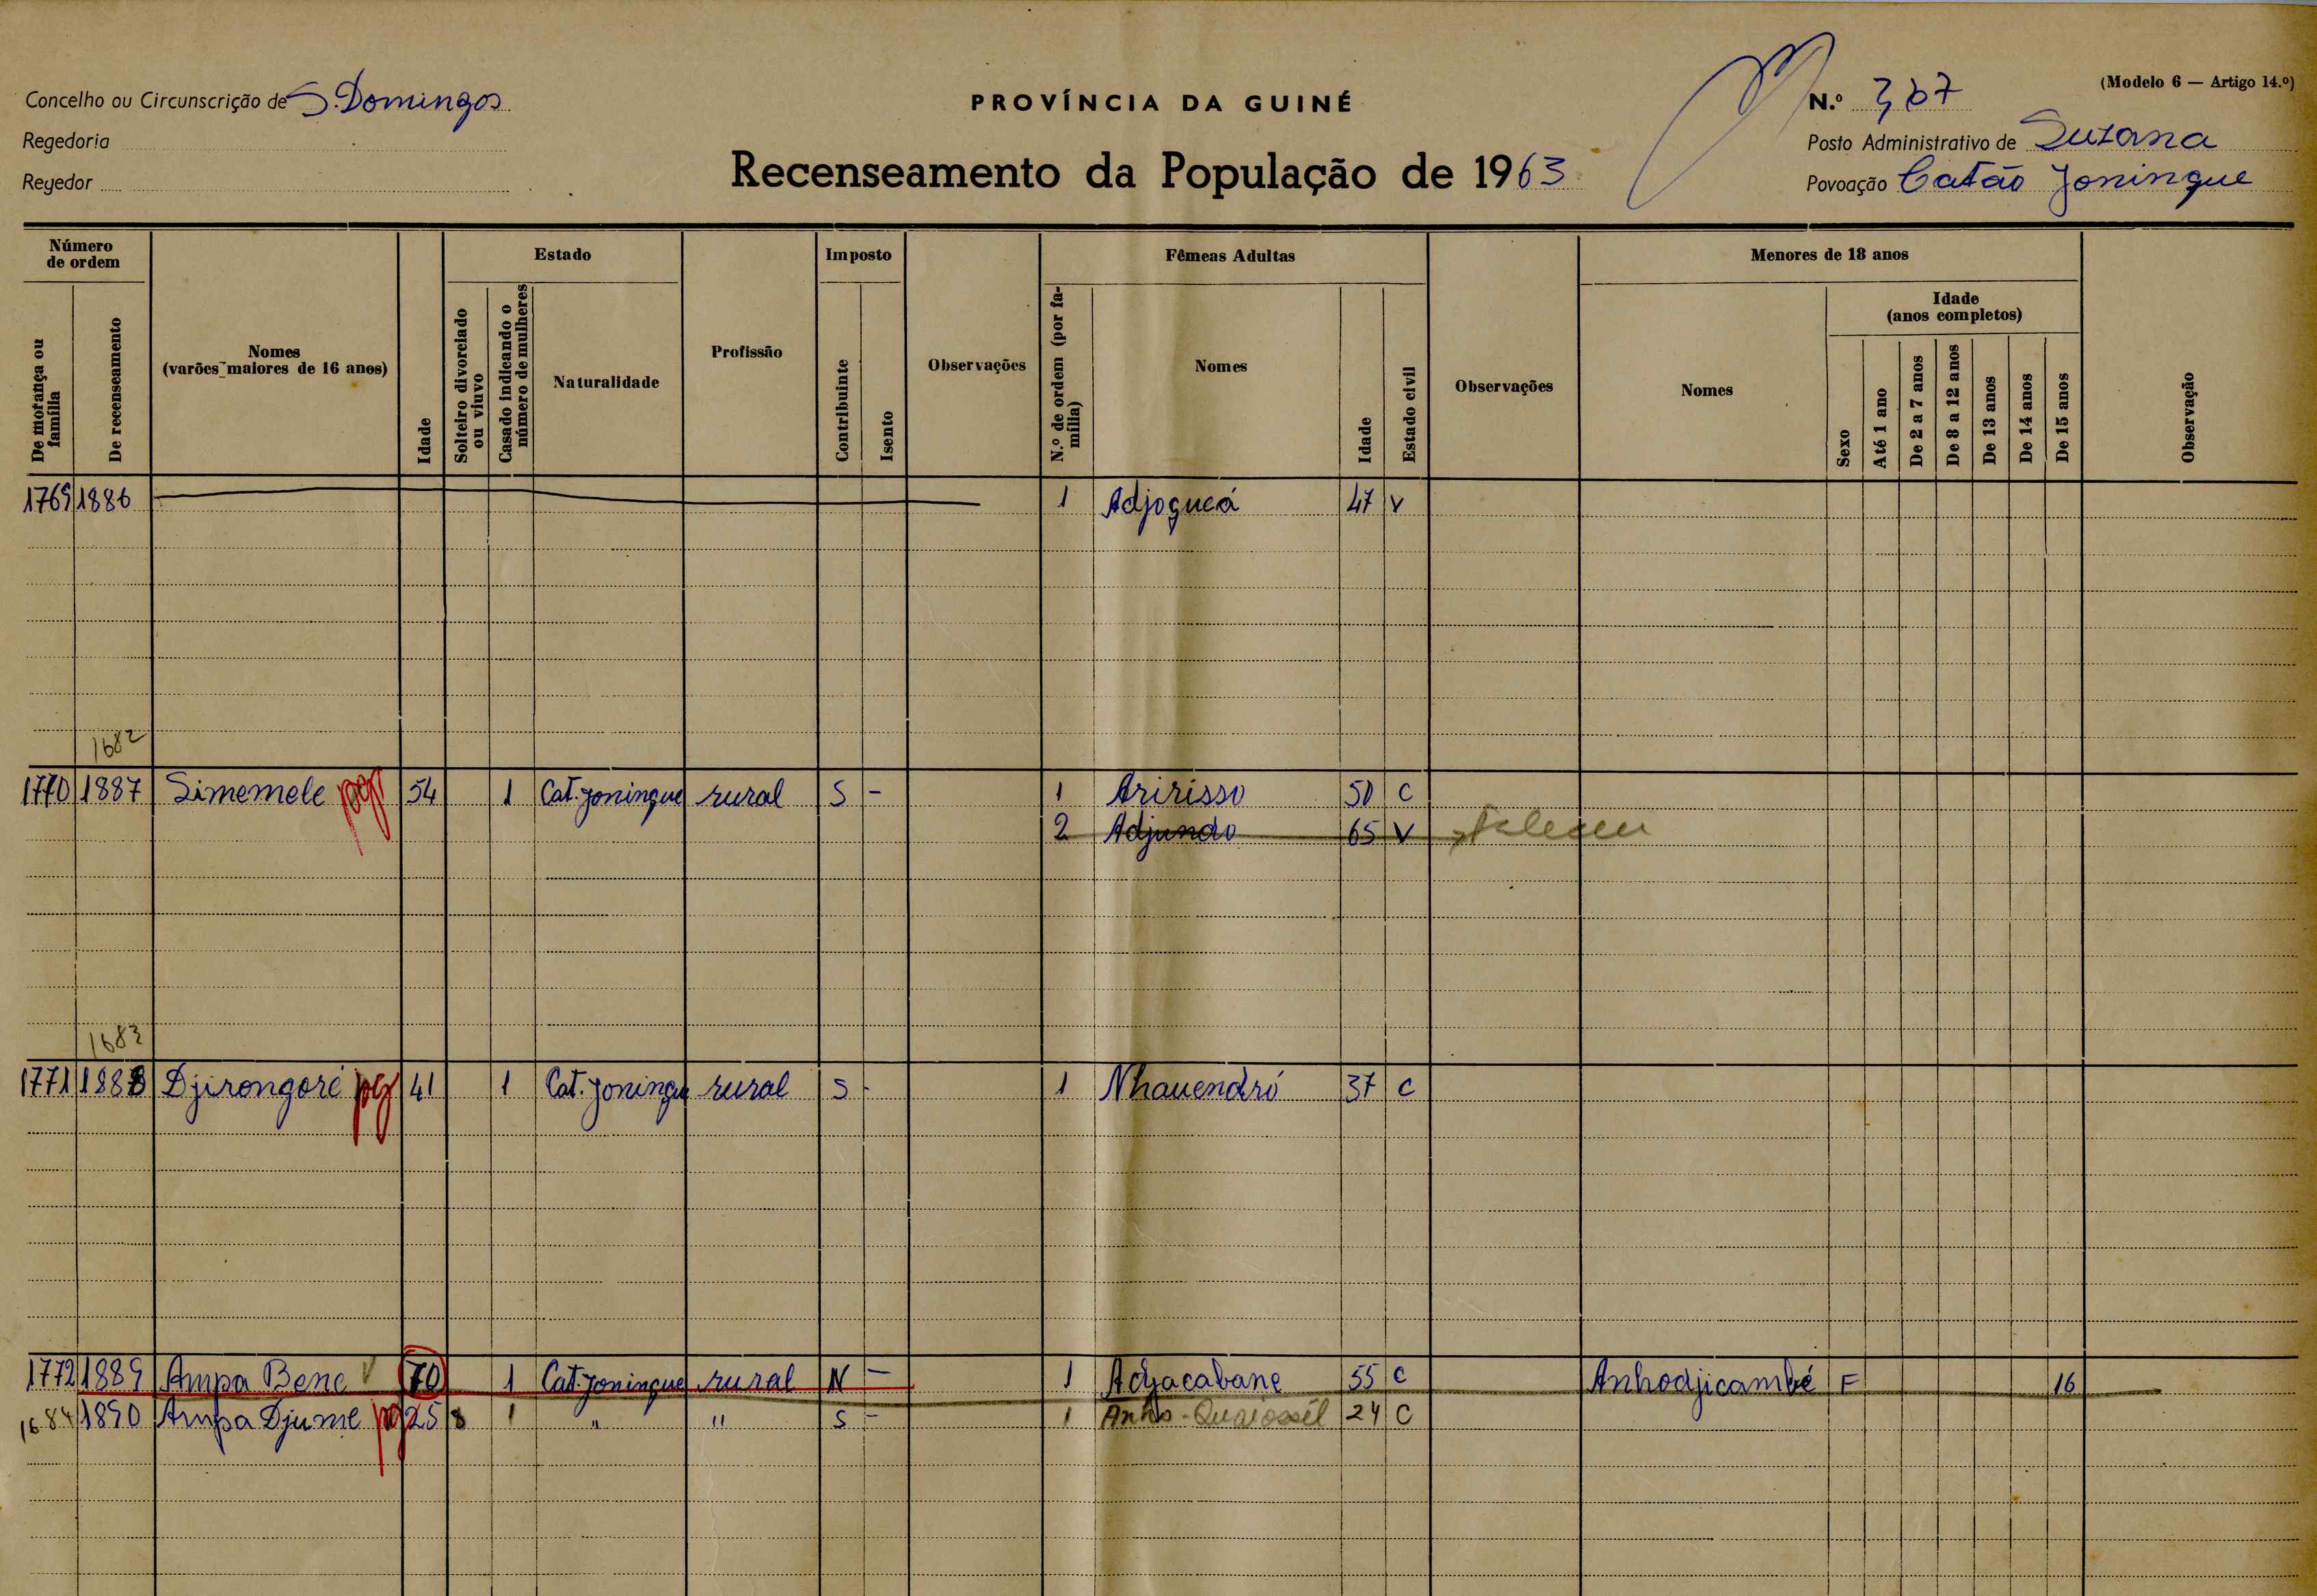 (Modelo 6 — Artigo 14.º)
Concelho ou Circunscrição de S. Domingos
PROVÍNCIA DA GUINÉ
N.º 367
Regedoria
Posto Administrativo de Suzana
Regedor
Recenseamento da População de 1963
Povoação Catão Joningue
Número de ordem
Estado
Imposto
Fêmeas Adultas
Menores de 18 anos
De morança ou família
De recenseamento
Nomes (varões maiores de 16 anos)
Idade
Solteiro divorciado ou viuvo
Casado indicando o número de mulheres
Naturalidade
Profissão
Contribuinte
Isento
Observações
N.º de ordem (por família)
Nomes
Idade
Estado civil
Observações
Nomes
Sexo
Idade (anos completos)
Até 1 ano
De 2 a 7 anos
De 8 a 12 anos
De 13 anos
De 14 anos
De 15 anos
Observação
1769 1886 1 Adjogueá 47 V
1682
1770 1887 Simemele pg 54 1 Cat. Joningue rural S - 1 Aririsso 50 C
2 Adjundo 65 V faleceu
1683
1771 1888 Djirongoré pg 41 1 Cat. Joningue rural S - 1 Nhauendró 37 C
1772 1889 Ampa Bene 70 1 Cat. Joningue rural N — 1 Adjacabane 55 C Anhodjicambé F 16
1684 1890 Ampa Djume pg 25 8 1 " " S - 1 24 C